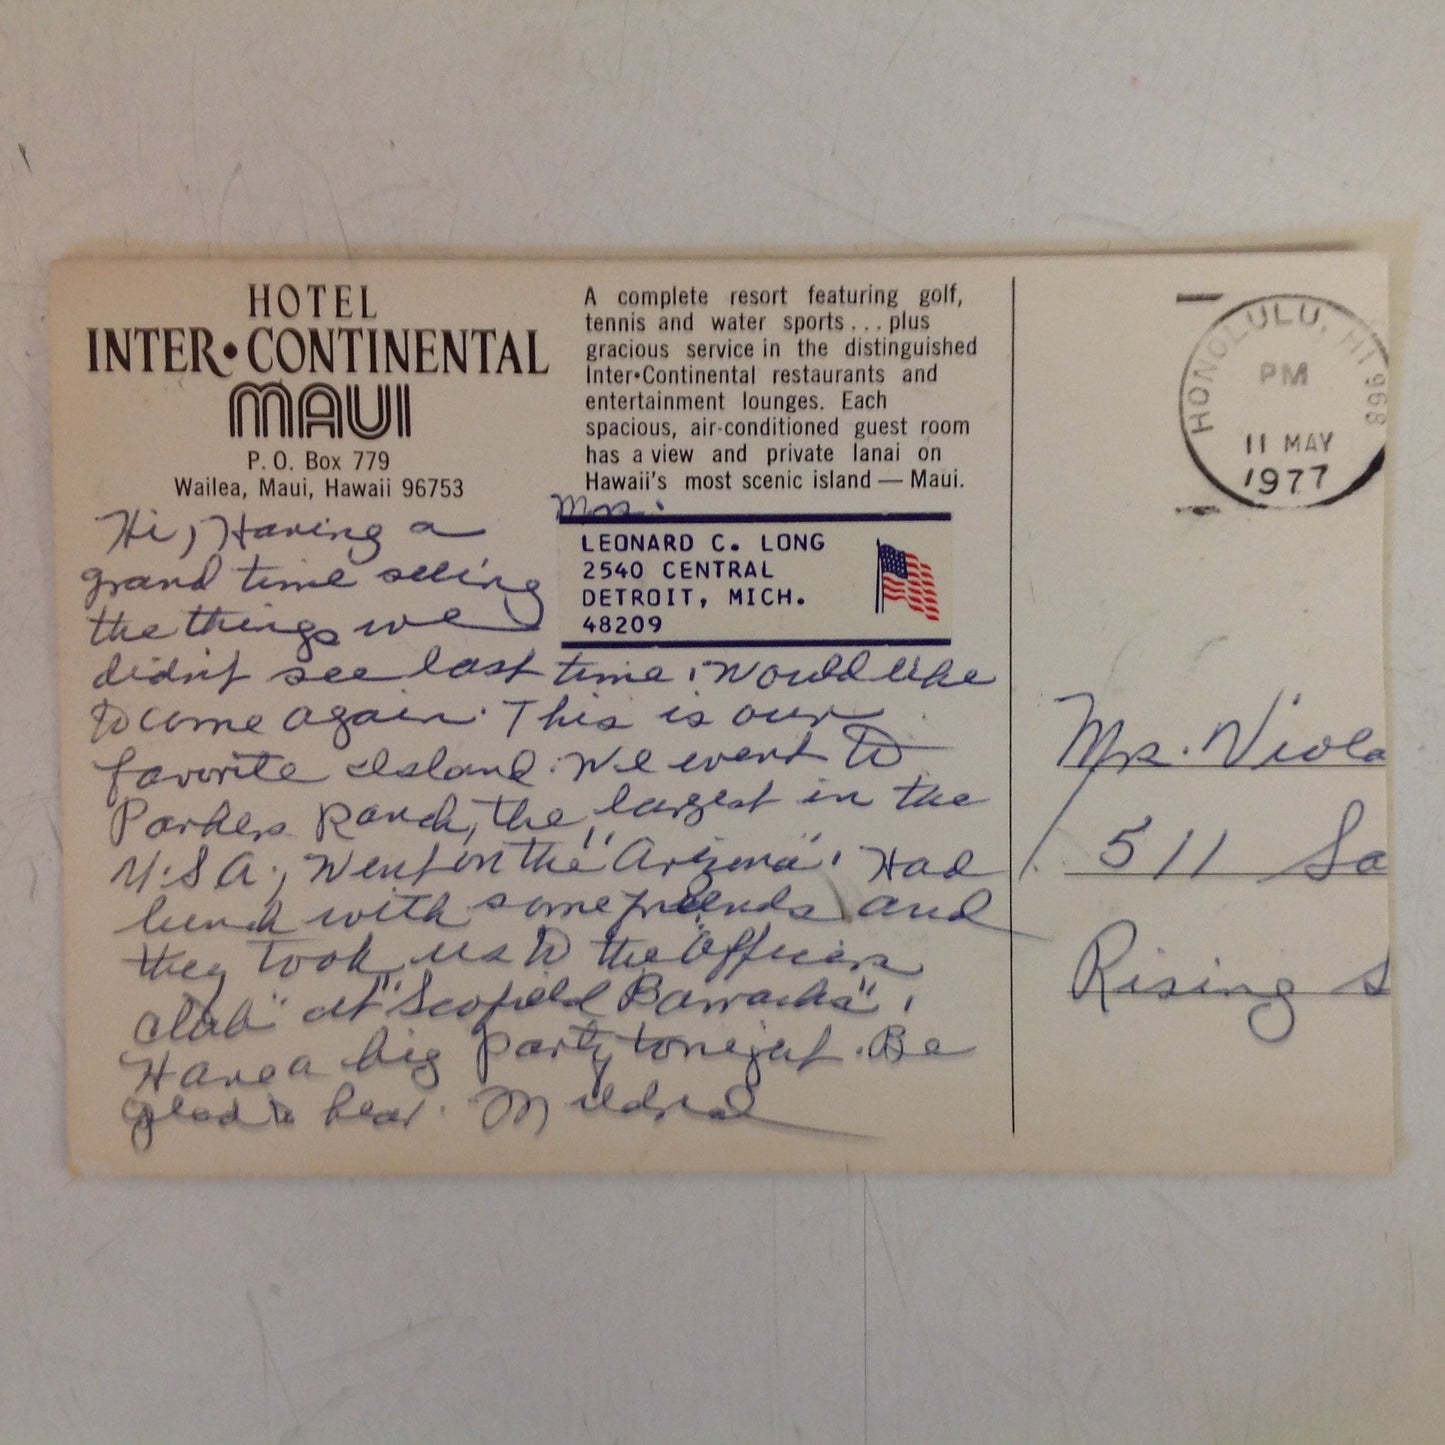 HOTEL
INTER•CONTINENTAL
MAUI
P. O. Box 779
Wailea, Maui, Hawaii 96753
A complete resort featuring golf,
tennis and water sports . . . plus
gracious service in the distinguished
Inter•Continental restaurants and
entertainment lounges. Each
spacious, air-conditioned guest room
has a view and private lanai on
Hawaii's most scenic island — Maui.
Mrs.
LEONARD C. LONG
2540 CENTRAL
DETROIT, MICH.
48209
Hi, Having a
grand time seeing
the things we
didn't see last time. Would like
to come again. This is our
favorite Island. We went to
Parkers Ranch, the largest in the
U.S.A., Went on the "Arizona". Had
lunch with some friends and
they took us to the "Officers
club" at "Scofield Barracks".
Have a big party tonight. Be
glad to hear. Mildred
HONOLULU, HI 968
PM
11 MAY
1977
Mrs. Viola
511 So
Rising S